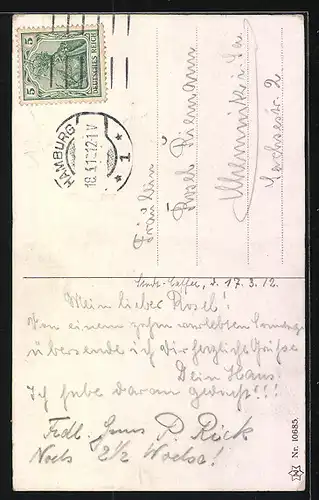 5 DEUTSCHES REICH 5
HAMBURG
18.3.12. 1 V
* 1 *
Fräulein
Rosel Riemann
Chemnitz i. Sa.
2
d. 17.3.12.
Mein liebes Rosel!
Von einem schön verlebten Sonntage
übersende ich Dir herzliche Grüße
Dein Hans.
Ich habe daran gedacht!!!
Frdl. Gruss P. Rück
Noch 2½ Woche!
Nr. 10685.